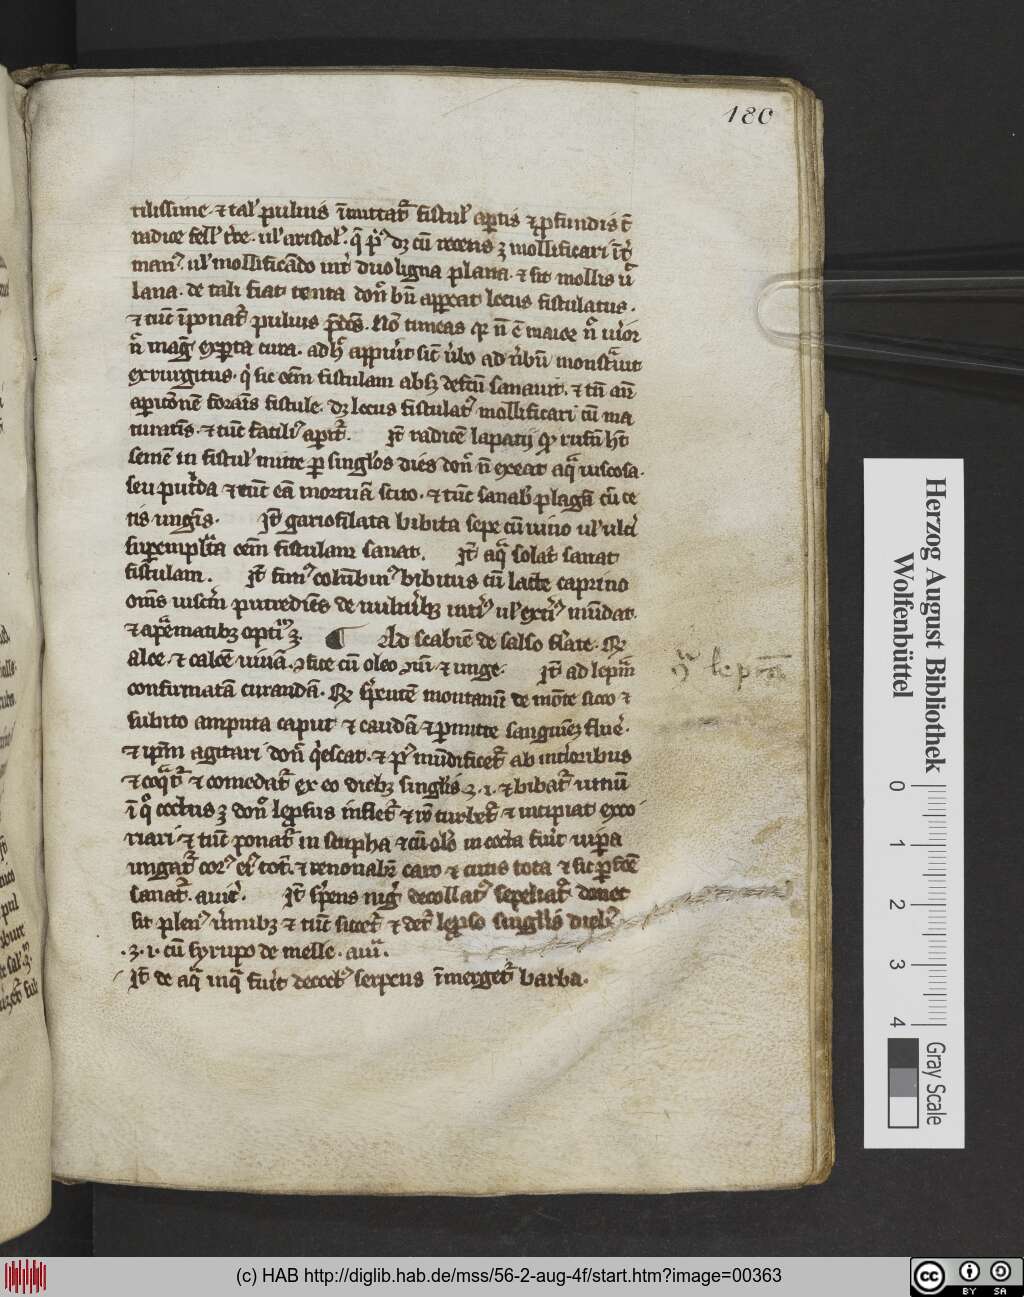 180
tilissime · ⁊ tal' puluis īmittat᷑ fistul' aꝑtis ⁊ ꝓfundis c̄
radice fell' tr̄e · ul' aristol' · q̄ pͥ dꝫ cū recens ꝫ mollificari īt᷑
manꝰ · ul' mollificādo int᷑ duo ligna plana · ⁊ fit mollis ut
lana · de tali fiat tenta don̄ bn̄ appeat locus fistulatus ·
⁊ tūc īponat᷑ puluis p̄dc̄s · Nō timeas qr n̄ ē maior n̄ uerior
n̄ mag᷑ exꝑta cura · ad h̄ appuit sic̄ ūbo ad ūbū monstuit
exyurgitus · q' sic oēm fistulam absꝫ defcū sanauit · ⁊ tn̄ an̄
aꝑitōnē foraīs fistule · dꝫ locus fistulatꝰ mollificari cū ma
turatīs · ⁊ tūc facili' aperit᷑ · It̄ radicē lapatij ꝙ rufū hꝫ
semē in fistul' mitte ꝑ singlos dies don̄ n̄ exeat aq̄ uiscosa ·
seu putrida ⁊ tūc eā mortuā scito · ⁊ tūc sanabꝰ plagā cū ce
tis ungtīs · It̄ gariofilata bibita sepe cū uino ul' ulcī
suꝑemplāta oēm fistulam sanat · It̄ aq̄ solat᷑ sanat
fistulam · It̄ fimꝰ colūbinꝰ bibitus cū lacte caprino
om̄s uiscm̄ putredīēs de uulnībꝫ intꝰ ul' extꝰ mūdat
⁊ apematibꝫ optimꝰ ꝫ · ¶ Ad scabiē de salso flate · ℞
aloe · ⁊ calcē uiuā · ꝯfice cū oleo ꝯmī · ⁊ unge · It̄ ad leprā
confirmatā curandā · ℞ sp̄entē montanū de mōte sicco ⁊
subito amputa caput ⁊ caudā ⁊ ꝑmitte sanguinē fluē ·
⁊ ip̄m agitari don̄ q̇escat · ⁊ pꝰ mūdificet᷑ ab interioribus
⁊ coqt᷑ ⁊ comedat᷑ ex eo diebꝫ singlis · ꝫ · i · ⁊ bibat᷑ uinū
ī qͦ coctus ꝫ donͨ leprosus inflet᷑ ⁊ turbet᷑ ⁊ incipiat exco
riari · ⁊ tūc ponat᷑ in stupha ⁊ cū oleo in cocta fuit uiꝑa
ungat᷑ corꝰ eiꝰ totū · ⁊ renouabit᷑ caro ⁊ cutis tota ⁊ sic ꝑfcē
sanat᷑ · auic᷑ · It̄ sp̄ens nig᷑ decollatꝰ sepeliat᷑ donec
sit plenꝰ ūmibꝫ ⁊ tūc siccet᷑ ⁊ det᷑ lepso singlis diebꝫ
· ꝫ · i · cū syrupo de melle · aui᷑ ·
It̄ de aq̄ in q̄ fuit decoctꝰ serpens īmerget᷑ barba ·
lepra
Herzog August Bibliothek
Wolfenbüttel
0 1 2 3 4
Gray Scale
(c) HAB http://diglib.hab.de/mss/56-2-aug-4f/start.htm?image=00363
cc BY SA